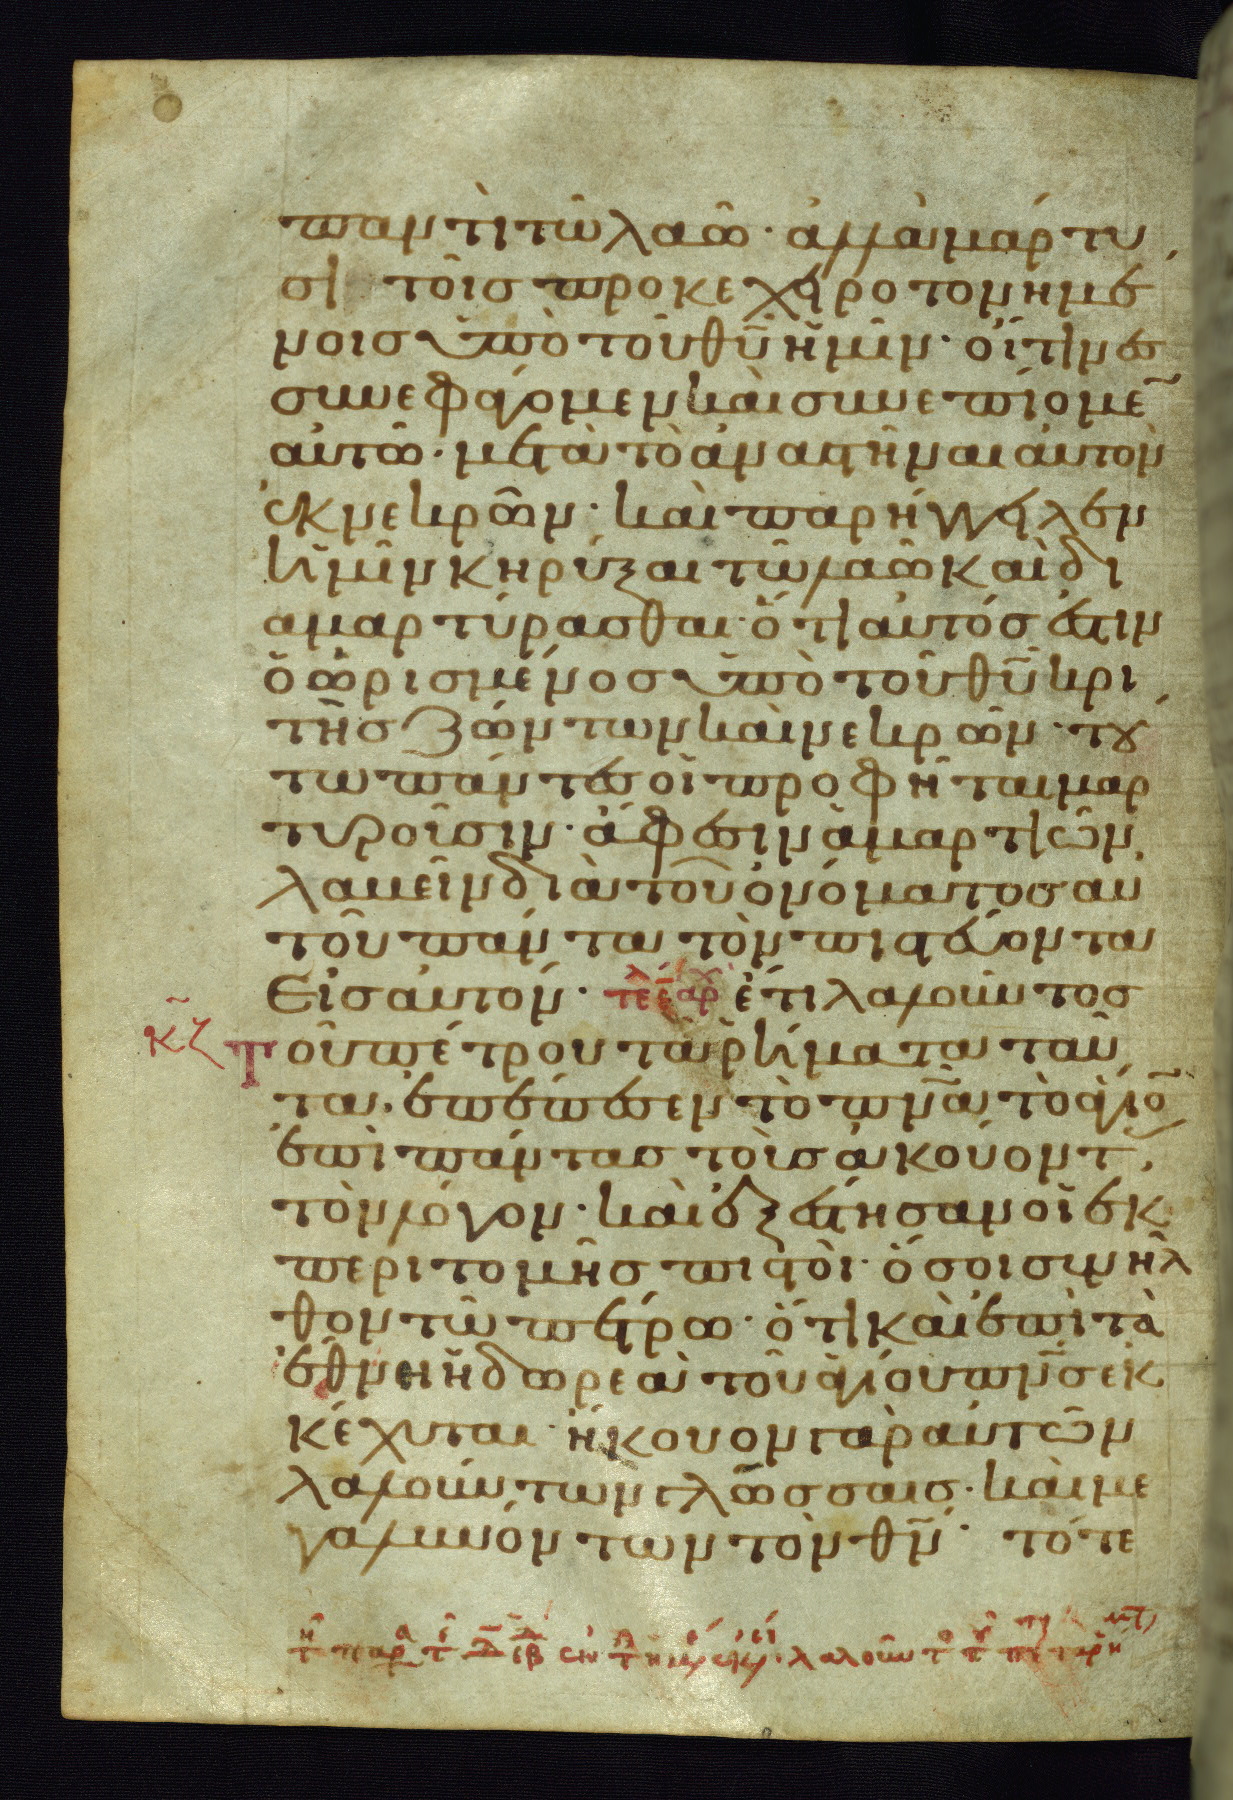 παντὶ τῶ λαῶ· ἀλλὰ μάρτυ
σι τοῖς προκεχειροτονημέ
νοις ὑπὸ τοῦ θ̅υ̅ ἡμῖν· οἵτινες
συνεφάγομεν καὶ συνεπίομε̅
αὐτῶ· μετὰ τὸ ἀναστῆναι αὐτὸν
ἐκ νεκρῶν· καὶ παρήγγειλεν
ἡμῖν κηρύξαι τῶ λαῶ καὶ δι
αμαρτύρασθαι· ὅτι αὐτός ἐστιν
ὁ ὡρισμένος ὑπὸ τοῦ θ̅υ̅ κρι
τὴς ζώντων καὶ νεκρῶν· τού
τω πάντες οἱ προφῆται μαρ
τυροῦσιν· ἄφεσιν ἁμαρτιῶν
λαβεῖν διὰ τοῦ ὀνόματος αὐ
τοῦ πάντα τὸν πιστεύοντα
Εἰς αὐτόν· τέλ ἀρχ ἔτι λαλοῦντος
κζ τοῦ πέτρου τὰ ῥήματα ταῦ
τα· ἐπέπεσεν τὸ π̅ν̅α̅ τὸ ἅγιο̅
ἐπὶ πάντας τοὺς ἀκούοντ
τὸν λόγον· καὶ ἐξέστησαν οἱ ἐκ
περιτομῆς πιστοὶ· ὅσοι συνῆλ
θον τῶ πέτρω· ὅτι καὶ ἐπὶ τὰ
ἔθνη ἡ δωρεὰ τοῦ ἁγίου π̅ν̅ς̅ ἐκ
κέχυται· ἤκουον γὰρ αὐτῶν
λαλούντων γλώσσαις· καὶ με
γαλυνόντων τὸν θ̅ν̅· τότε